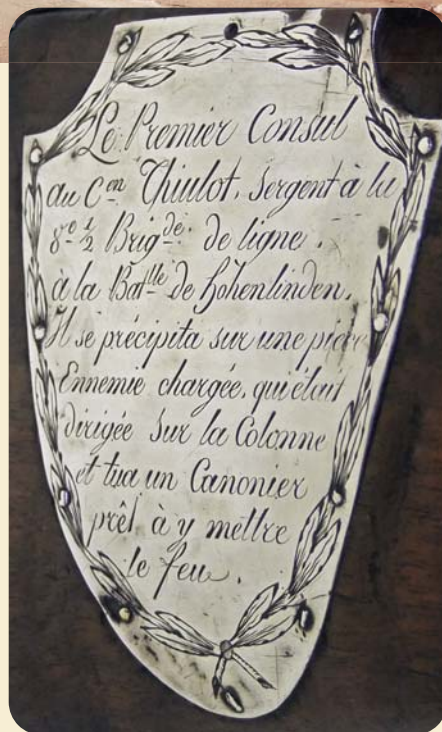 Le Premier Consul
au C.en Thiulot, Sergent à la
8e ½ Brigde. de ligne.
à la Batlle de Hohenlinden.
Il se précipita sur une pièce
Ennemie chargée, qui était
dirigée sur la Colonne
et tua un Canonier
prêt à y mettre
le feu.